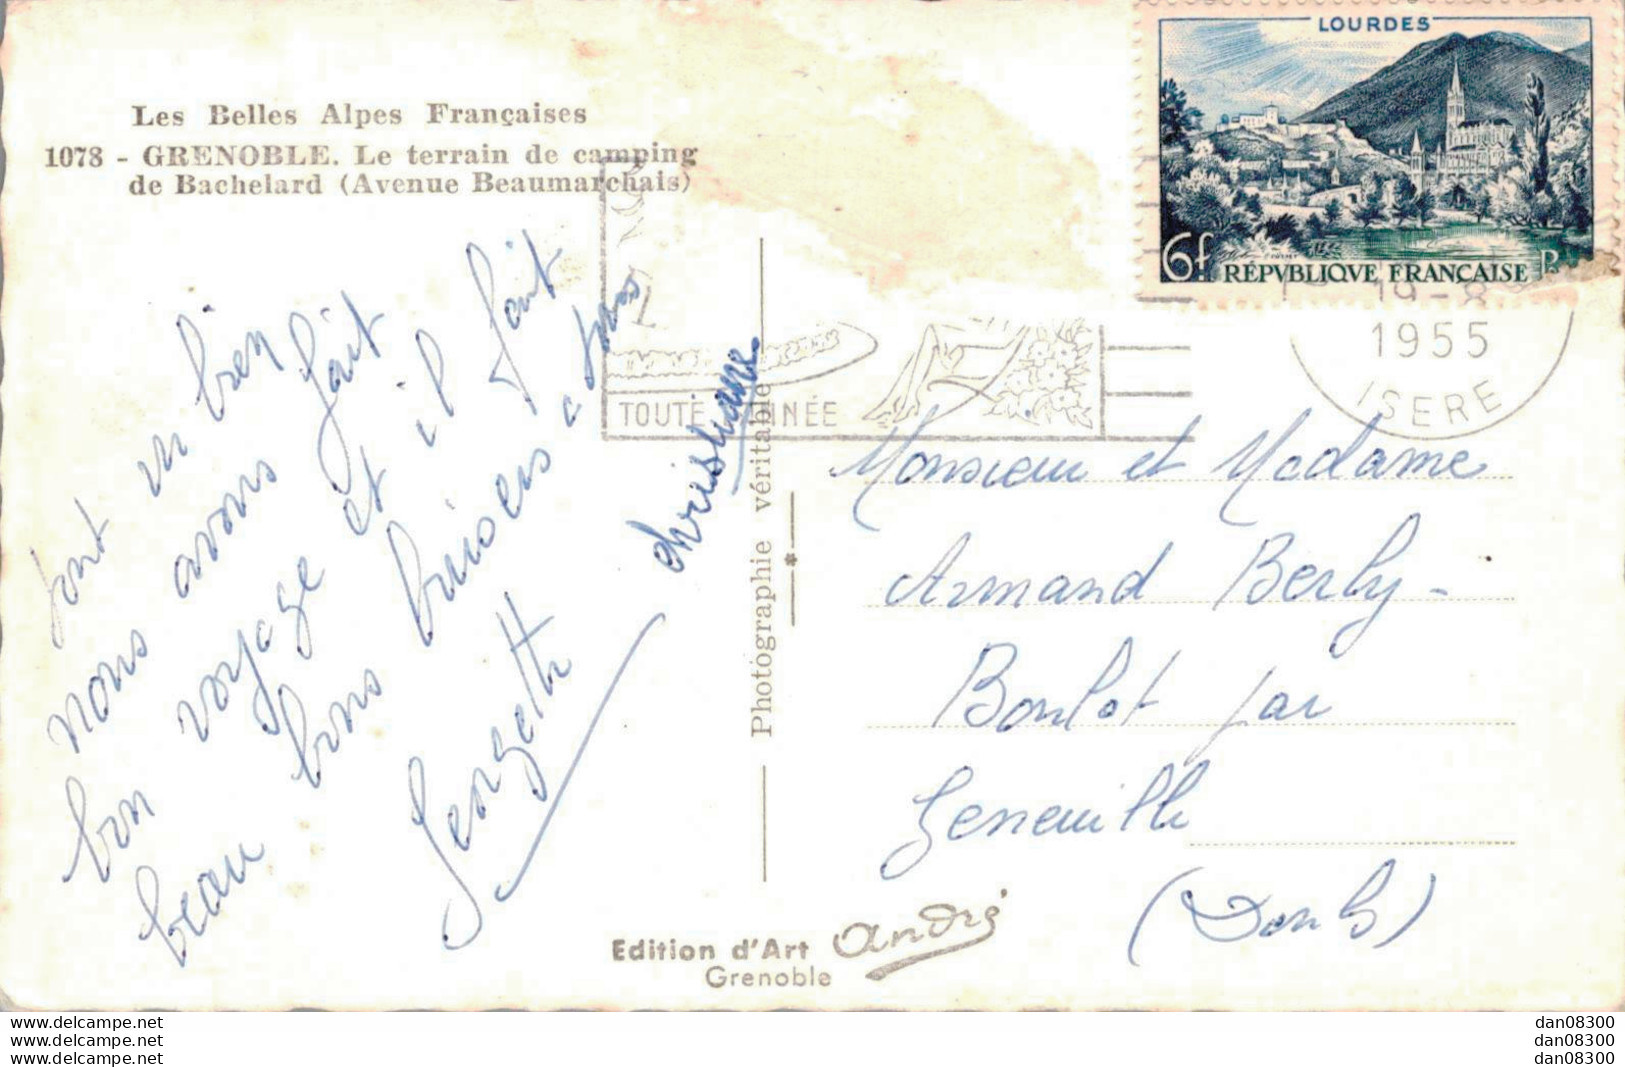 LOURDES
6f RÉPVBLIQVE FRANÇAISE
Les Belles Alpes Françaises
1078 - GRENOBLE. Le terrain de camping
de Bachelard (Avenue Beaumarchais)
19 - 8
1955
ISERE
TOUTE NÉE
tout va bien
nous avons fait
bon voyage et il fait
beau. bons baisers à tous
Georgette
christiane
Photographie véritable
Monsieur et Madame
Armand Berly -
Boulot par
Geneuille
(Doubs)
Edition d'Art André
Grenoble
www.delcampe.net
www.delcampe.net
www.delcampe.net
dan08300
dan08300
dan08300